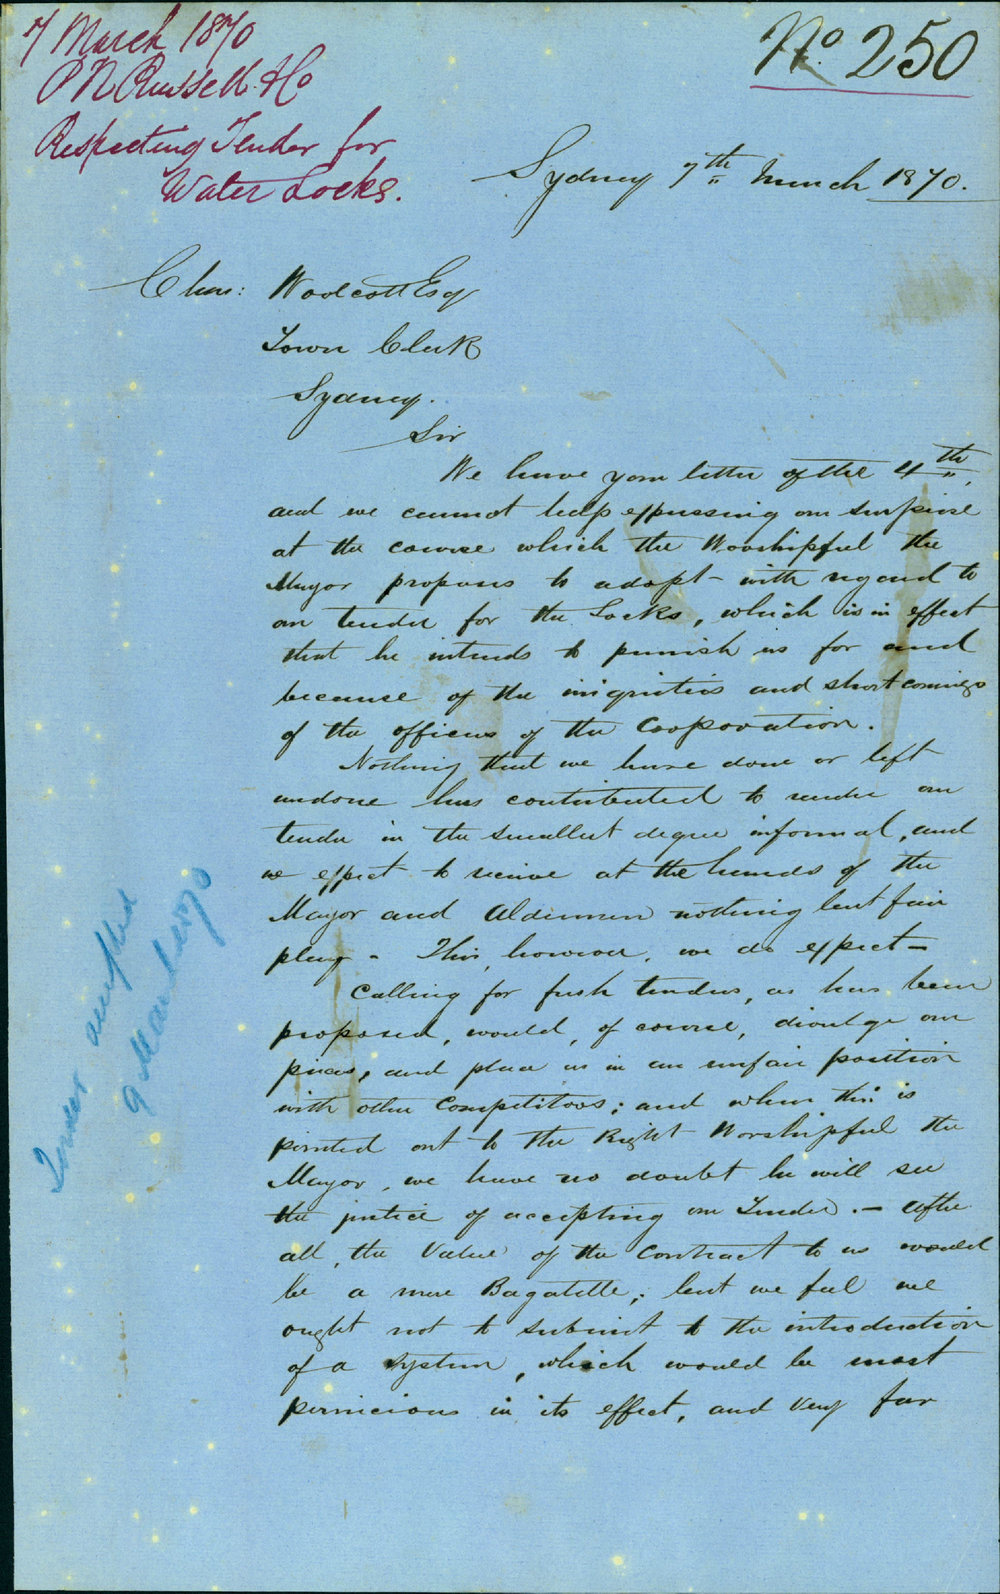 7 March 1870
P N Russell & Co
Respecting Tender for
Water Locks.
No. 250
Sydney 7th March 1870.
Chas: Woolcott Esq
Town Clerk
Sydney.
Sir
We have your letter of the 4th,
and we cannot help expressing our surprise
at the course which the Worshipful the
Mayor proposes to adopt - with regard to
our tender for the Locks, which is in effect
that he intends to punish us for and
because of the iniquities and short comings
of the officers of the Corporation.
Nothing that we have done or left
undone has contributed to render our
tender in the smallest degree informal, and
we expect to receive at the hands of the
Mayor and Aldermen nothing but fair
play - This, however, we do expect -
Calling for fresh tenders, as has been
proposed, would, of course, divulge our
prices, and place us in an unfair position
with other Competitors; and when this is
pointed out to the Right Worshipful the
Mayor, we have no doubt he will see
the justice of accepting our Tender. - After
all, the Value of the Contract to us would
be a mere Bagatelle; but we feel we
ought not to submit to the introduction
of a system, which would be most
pernicious in its effect, and very far
Tender accepted
9 March 1870